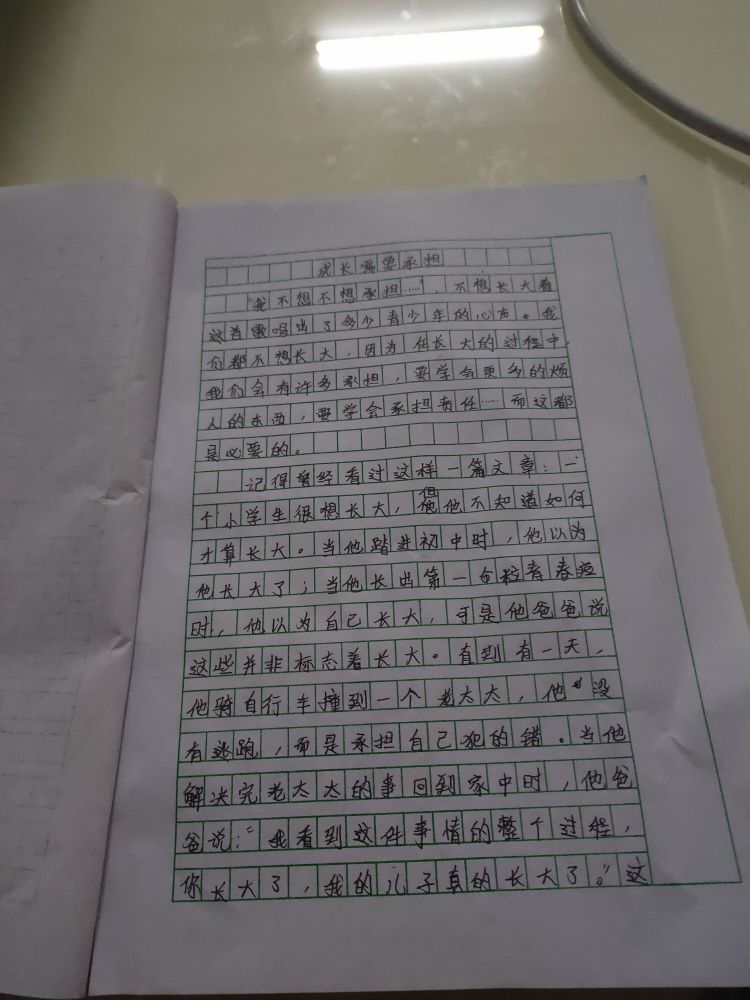 成长需要承担
"我不想不想承担……",不想长大看
这首歌唱出了多少青少年的心声。我
们都不想长大,因为在长大的过程中,
我们会有许多承担,要学会更多的烦
人的东西,要学会承担责任……而这都
是必要的。
记得曾经看过这样一篇文章:一
个小学生很想长大,但他不知道如何
才算长大。当他踏进初中时,他以为
他长大了;当他长出第一粒青春痘
时,他以为自己长大,于是他爸爸说
这些并非标志着长大。直到有一天,
他骑自行车撞到一个老太太,他没
有逃跑,而是承担自己犯的错。当他
解决完老太太的事回到家中时,他爸
爸说:"我看到这件事情的整个过程,
你长大了,我的儿子真的长大了。"这